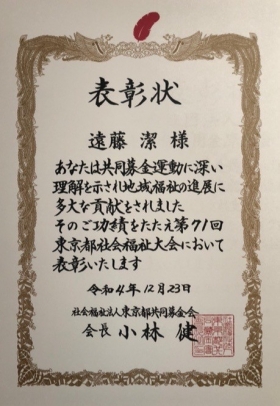 表彰状
遠藤 潔 様
あなたは共同募金運動に深い
理解を示され地域福祉の進展に
多大な貢献をされました
そのご功績をたたえ第71回
東京都社会福祉大会において
表彰いたします
令和4年12月23日
社会福祉法人東京都共同募金会
会長 小林 健